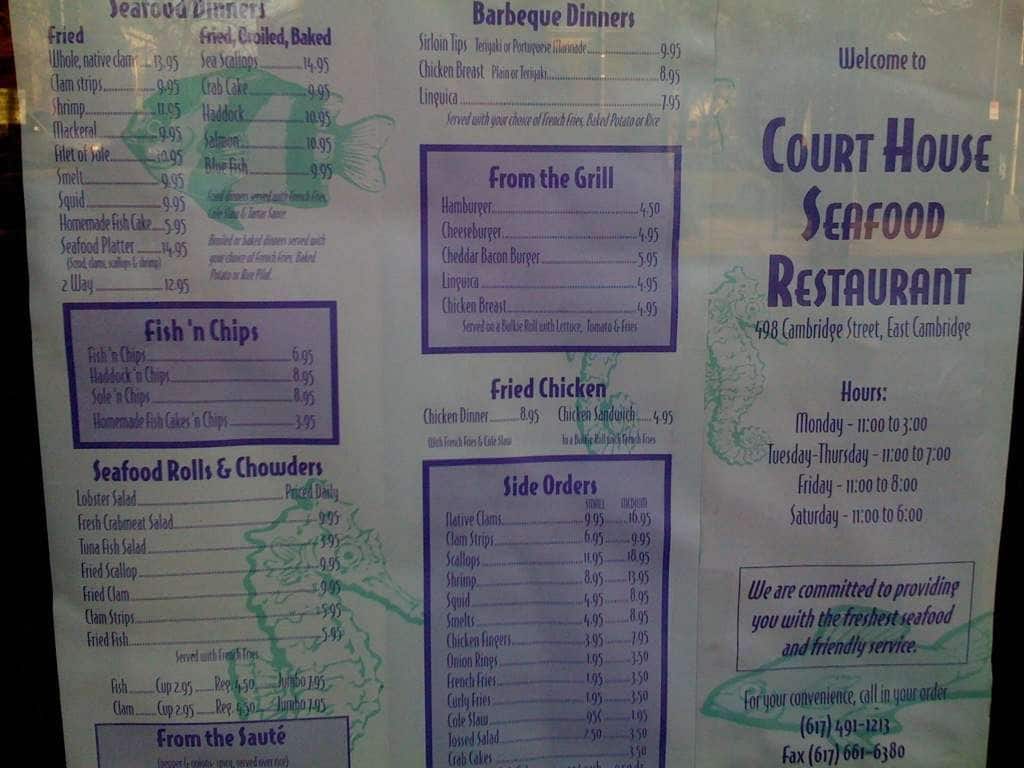 Seafood Dinners
Fried
Whole, native clams 13.95
Clam strips 9.95
Shrimp 11.95
Mackeral 9.95
Filet of Sole 10.95
Smelt 9.95
Squid 9.95
Homemade Fish Cake 5.95
Seafood Platter 14.95
(Scrod, clams, scallops & shrimp)
2 Way 12.95
Fried, Broiled, Baked
Sea Scallops 14.95
Crab Cake 9.95
Haddock 10.95
Salmon 10.95
Blue Fish 9.95
Fried dinners served with French Fries,
Cole Slaw & Tartar Sauce
Broiled or baked dinners served with
your choice of French Fries, Baked
Potato or Rice Pilaf.
Fish 'n Chips
Fish 'n Chips 6.95
Haddock 'n Chips 8.95
Sole 'n Chips 8.95
Homemade Fish Cakes 'n Chips 3.95
Seafood Rolls & Chowders
Lobster Salad Priced Daily
Fresh Crabmeat Salad 9.95
Tuna Fish Salad 3.95
Fried Scallop 9.95
Fried Clam 9.95
Clam Strips 5.95
Fried Fish 5.95
Served with French Fries
Fish Cup 2.95 Reg. 4.50 Jumbo 7.95
Clam Cup 2.95 Reg. 4.50 Jumbo 7.95
From the Sauté
(pepper & onions, spicy, served over rice)
Barbeque Dinners
Sirloin Tips Teriyaki or Portuguese Marinade 9.95
Chicken Breast Plain or Teriyaki 8.95
Linguica 7.95
Served with your choice of French Fries, Baked Potato or Rice
From the Grill
Hamburger 4.50
Cheeseburger 4.95
Cheddar Bacon Burger 5.95
Linguica 4.95
Chicken Breast 4.95
Served on a Bulkie Roll with Lettuce, Tomato & Fries
Fried Chicken
Chicken Dinner 8.95 Chicken Sandwich 4.95
With French Fries & Cole Slaw In a Bulkie Roll with French Fries
Side Orders
SMALL MEDIUM
Native Clams 9.95 16.95
Clam Strips 6.95 9.95
Scallops 11.95 18.95
Shrimp 8.95 13.95
Squid 4.95 8.95
Smelts 4.95 8.95
Chicken Fingers 3.95 7.95
Onion Rings 1.95 3.50
French Fries 1.95 3.50
Curly Fries 1.95 3.50
Cole Slaw 95¢ 1.95
Tossed Salad 2.50 3.50
Crab Cakes 3.50
Welcome to
COURT HOUSE
SEAFOOD
RESTAURANT
498 Cambridge Street, East Cambridge
Hours:
Monday - 11:00 to 3:00
Tuesday-Thursday - 11:00 to 7:00
Friday - 11:00 to 8:00
Saturday - 11:00 to 6:00
We are committed to providing
you with the freshest seafood
and friendly service.
For your convenience, call in your order
(617) 491-1213
Fax (617) 661-6380